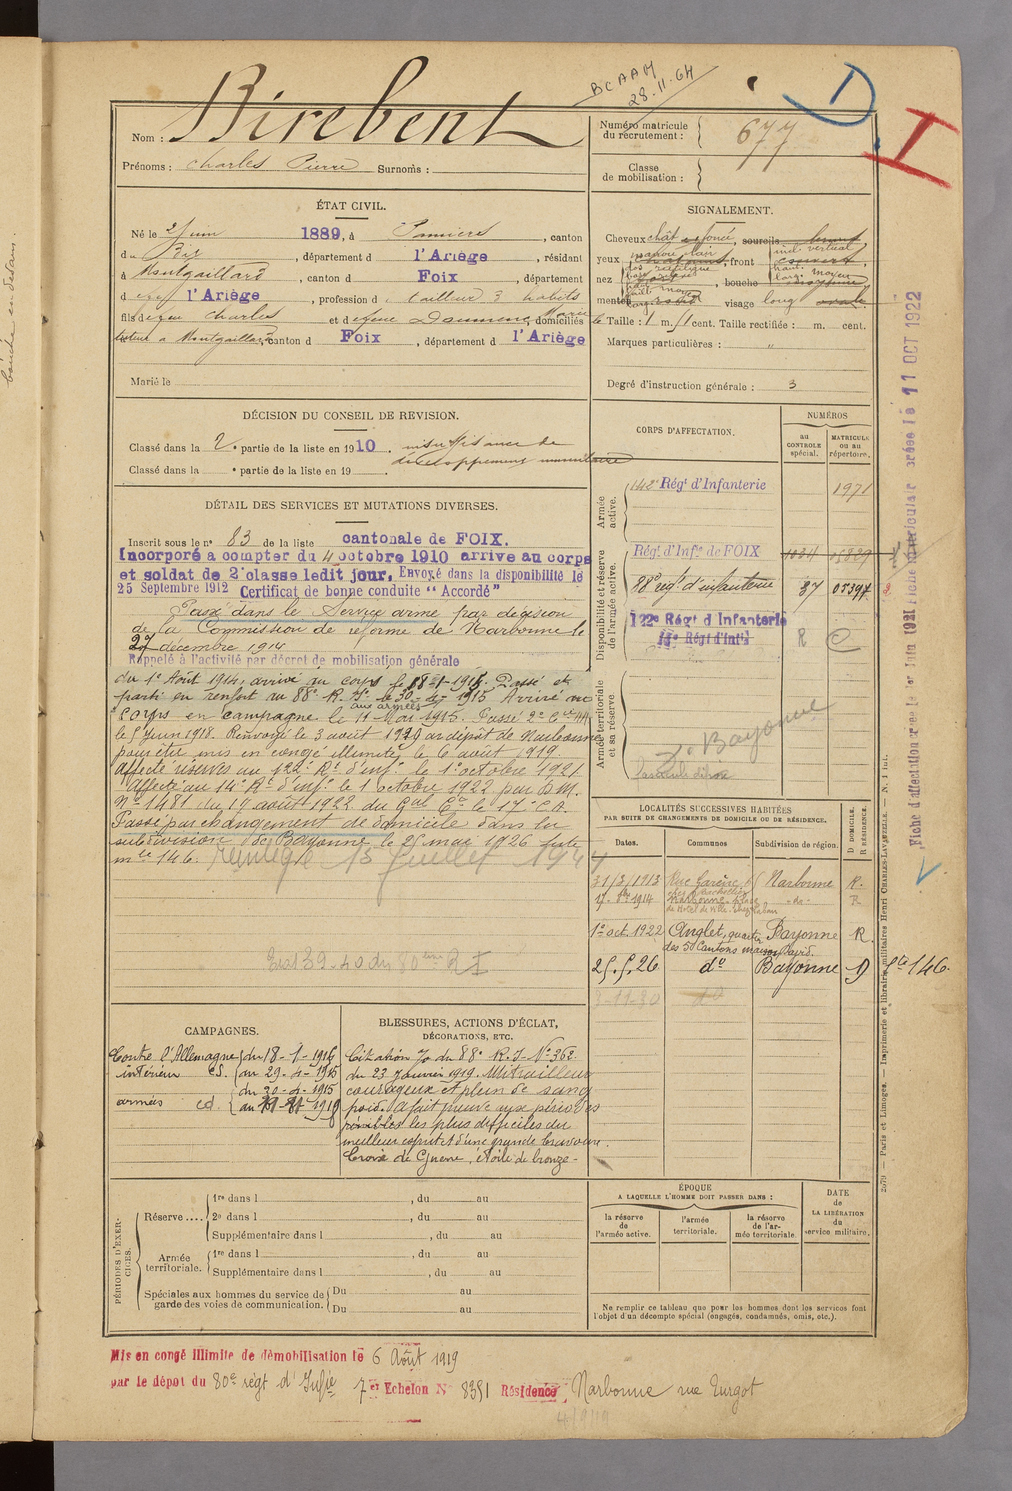 BCAAM
28.11.64
D.
I
Nom : Birebent
Prénoms : Charles Pierre Surnoms :
Numéro matricule du recrutement : 677
Classe de mobilisation :
ÉTAT CIVIL.
Né le 2 Juin 1889, à Pamiers, canton
du , département d l'Ariège, résidant
à Montgaillard, canton d Foix, département
d l'Ariège, profession d tailleur d'habits
fils de feu Charles et de feue Doumenc Marie, domiciliés
à Montgaillard canton d Foix, département d l'Ariège
Marié le
SIGNALEMENT.
Cheveux chât foncé, sourcils brun
yeux , front couvert
nez , bouche moyenne
menton rond visage long ovale
Taille : 1 m. 51 cent. Taille rectifiée : m. cent.
Marques particulières : "
Degré d'instruction générale : 3
DÉCISION DU CONSEIL DE REVISION.
Classé dans la 2e partie de la liste en 1910. insuffisance de
développement musculaire
Classé dans la e partie de la liste en 19
DÉTAIL DES SERVICES ET MUTATIONS DIVERSES.
Inscrit sous le n° 83 de la liste cantonale de FOIX.
Incorporé a compter du 4 octobre 1910 arrivé au corps
et soldat de 2e classe ledit jour. Envoyé dans la disponibilité le
25 Septembre 1912 Certificat de bonne conduite "Accordé"
Passé dans le Service armé par décision
de la Commission de réforme de Narbonne le
27 décembre 1914
Rappelé à l'activité par décret de mobilisation générale
du 1er Août 1914, arrivé au corps le 18-1-1915. Passé et
parti en renfort au 88e R.I. le 30-4-1915 Arrivé au
corps en campagne aux armées le 11 Mai 1915. Passé 2e Cie
le 5 Juin 1918. Renvoyé le 3 août 1919 au dépôt de Narbonne
pour être mis en congé illimité le 6 août 1919.
Affecté réserves au 122e Rt d'inf. le 1er octobre 1921.
Affecté au 14e Rt d'inf. le 1 octobre 1922 par D.M.
N° 1481 du 17 août 1922 du Gal Ct le 17e C.A.
Passé par changement de domicile dans la
subdivision de Bayonne le 25 mai 1926 liste
mle 146.
15 juillet 1944
39-40 du 80ème R I
CORPS D'AFFECTATION.
NUMÉROS
au CONTROLE spécial.
MATRICULE ou au répertoire.
Armée active.
142e Régt d'Infanterie 1971
Disponibilité et réserve de l'armée active.
Régt d'Infie de FOIX 1034 05829
88e régt d'infanterie 37 07397
122e Régt d'Infanterie R C
14e Régt d'Infie
Armée territoriale et sa réserve
Bayonne
LOCALITÉS SUCCESSIVES HABITÉES
PAR SUITE DE CHANGEMENTS DE DOMICILE OU DE RÉSIDENCE.
Dates. Communes Subdivision de région. D DOMICILE. R RÉSIDENCE.
31/3/1913 Rue Narbonne R.
1914 Narbonne place de l'Hôtel de Ville -do- R
1er oct. 1922 Anglet, quartier des 5 Cantons maison David. Bayonne R.
25.5.26 d° Bayonne D Lte 146.
8-11-30 d°
CAMPAGNES.
Contre l'Allemagne
intérieur CS. du 18-1-1915 au 29-4-1915
armées cd. du 30-4-1915 au 1919
BLESSURES, ACTIONS D'ÉCLAT,
DÉCORATIONS, ETC.
Citation du 88e R.I. N° 362
du 23 Janvier 1919. Mitrailleur
courageux et plein de sang
froid. A fait preuve aux périodes
les plus difficiles du
meilleur esprit et d'une grande bravoure.
Croix de Guerre, étoile de bronze -
PÉRIODES D'EXERCICES.
Réserve ....
1re dans l , du au
2e dans l , du au
Supplémentaire dans l , du au
Armée territoriale.
1re dans l , du au
Supplémentaire dans l , du au
Spéciales aux hommes du service de garde des voies de communication.
Du au
Du au
ÉPOQUE
A LAQUELLE L'HOMME DOIT PASSER DANS :
la réserve de l'armée active.
l'armée territoriale.
la réserve de l'armée territoriale.
DATE de LA LIBÉRATION du service militaire.
Ne remplir ce tableau que pour les hommes dont les services font
l'objet d'un décompte spécial (engagés, condamnés, omis, etc.).
Mis en congé illimité de démobilisation le 6 Août 1919
par le dépôt du 80e régt d'Infie 7er Echelon N° 8351 Résidence Narbonne rue Turgot
Fiche d'affectation créée le 1er Juin 1921 Fiche matriculaire créée le 11 OCT 1922
2079 — Paris et Limoges. — Imprimerie et librairie militaires Henri CHARLES-LAVAUZELLE.